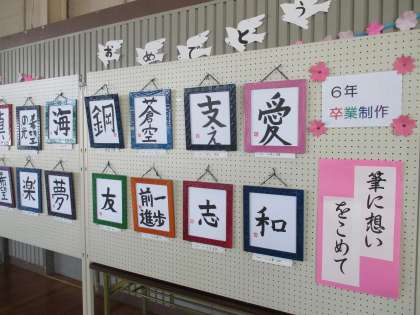 おめでとう
6年
卒業制作
筆に想い
をこめて
海
鋼
蒼空
支え
愛
楽
夢
友
前進
一歩
志
和